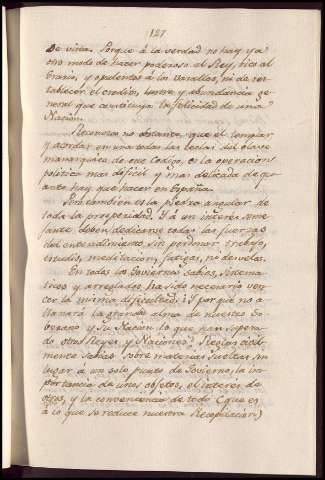 127
de vista. Porque á la verdad no hay ya
otro modo de hacer poderoso al Rey, rico al
Erario, y opulentos á los Vasallos, ni de res-
tablecer el credito, lustre y abundancia ge-
neral que constituya la felicidad de una
Nacion.
Reconozco no obstante, que el templar
y acordar en una todas las teclas del clave
monarquico de ese Codigo, es la operacion
politica mas dificil y mas delicada de qu-
anto hay que hacer en España.
Pero tambien es la piedra angular de
toda la prosperidad. Y á un interes seme-
jante deben dedicarse todas las fuerzas
del entendimiento sin perdonar trabajo,
estudio, meditacion, fatigas, ni desvelos.
En todos los Goviernos sabios, sistema-
ticos y arreglados ha sido necesario ven-
cer la misma dificultad: Y por que no a-
llanará la grande alma de nuestro So-
berano y su Nacion lo que han supera-
do otros Reyes y Naciones? Reglas
mente sabias sobre materias sueltas, sin
lugar á un solo punto de Govierno, la im-
portancia de unos objetos, el caracter de
otros, y la conveniencia de todo (que es
á lo que se reduce nuestra Recopilacion)